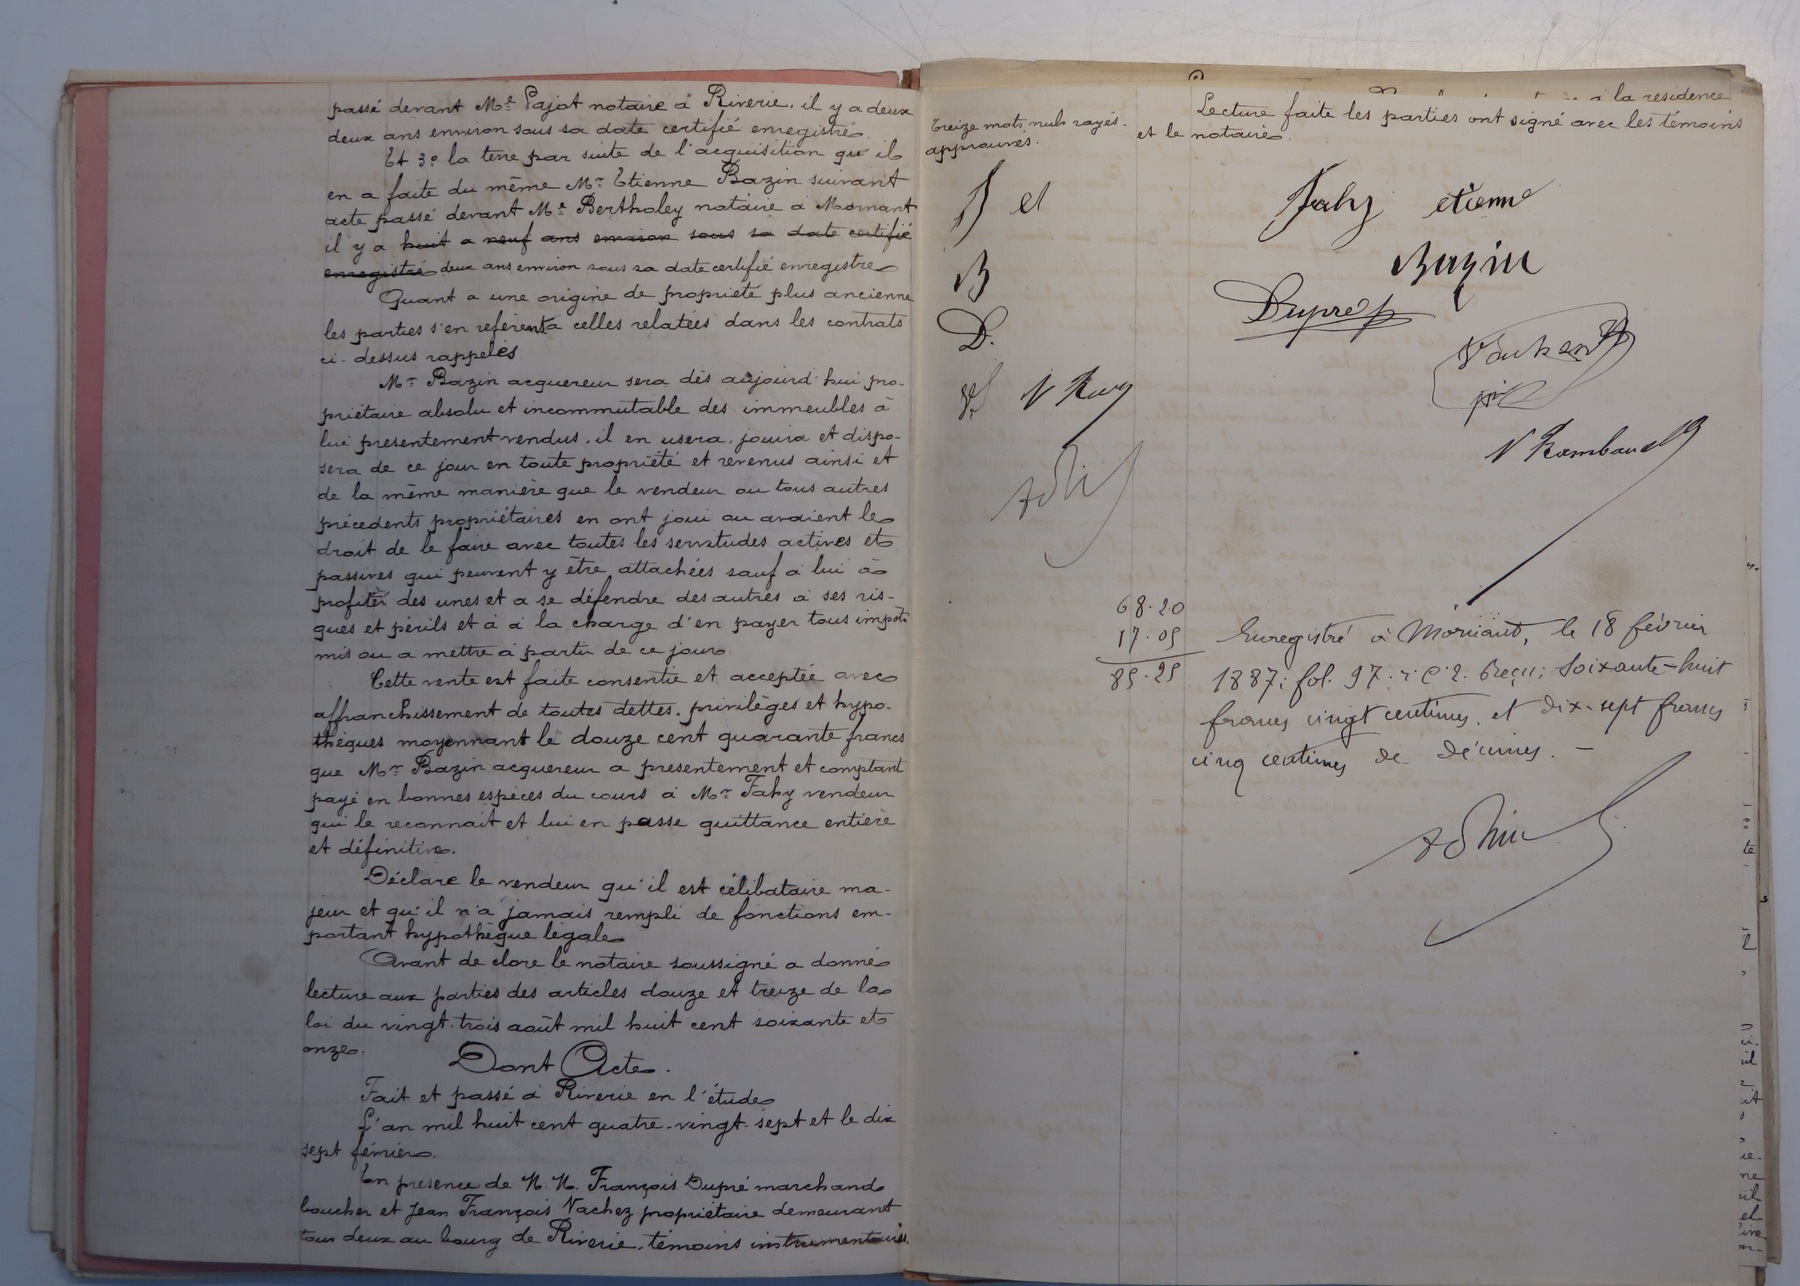 passé devant Me Pajot notaire à Riverie. il y a deux
deux ans environ sous sa date certifié enregistré.
Et 3o la terre par suite de l'acquisition qu'il
en a faite du même Mr Etienne Bazin suivant
acte passé devant Me Bertholey notaire à Mornant
il y a huit a neuf ans environ sous sa date certifié
enregistré deux ans environ sous sa date certifié enregistre
Quant a une origine de propriété plus ancienne
les parties s'en reférent a celles relatées dans les contrats
ci-dessus rappelés
Mr Bazin acquereur sera dès aujourd'hui pro-
priétaire absolu et incommutable des immeubles à
lui presentement vendus. il en usera, jouira et dispo-
sera de ce jour en toute propriété et revenus ainsi et
de la même manière que le vendeur ou tous autres
précédents propriétaires en ont joui ou avaient le
droit de le faire avec toutes les servitudes actives et
passives qui peuvent y être attachées sauf à lui à
profiter des unes et a se défendre des autres à ses ris-
ques et périls et à à la charge d'en payer tous impots
mis ou a mettre à partir de ce jour
Cette vente est faite consentie et acceptée avec
affranchissement de toutes dettes. privilèges et hypo-
thèques moyennant le douze cent quarante francs
que Mr Bazin acquereur a presentement et comptant
payé en bonnes espèces du cours à Mr Fahy vendeur
qui le reconnait et lui en passe quittance entière
et définitive.
Déclare le vendeur qu'il est célibataire ma-
jeur et qu'il n'a jamais rempli de fonctions em-
portant hypothèque légale
Avant de clore le notaire soussigné a donné
lecture aux parties des articles douze et treize de la
loi du vingt-trois août mil huit cent soixante et
onze.
Dont Acte.
Fait et passé à Riverie en l'étude
L'an mil huit cent quatre-vingt-sept et le dix
sept février.
En presence de M. M. François Dupré marchand
boucher et Jean François Vachez propriétaire demeurant
tous deux au bourg de Riverie, témoins instrumentaires.
à la residence
Lecture faite les parties ont signé avec les témoins
et le notaire.
Treize mots nuls rayés.
approuvés.
et
B
D.
Fahy étienne
Bazin
Dupré
V Rambaud
68.20
17.05
85.25
Enregistré à Mornant, le 18 février
1887; fol. 97. r. C. 2. Reçu: Soixante-huit
francs vingt centimes. et dix-sept francs
cinq centimes de décimes. –